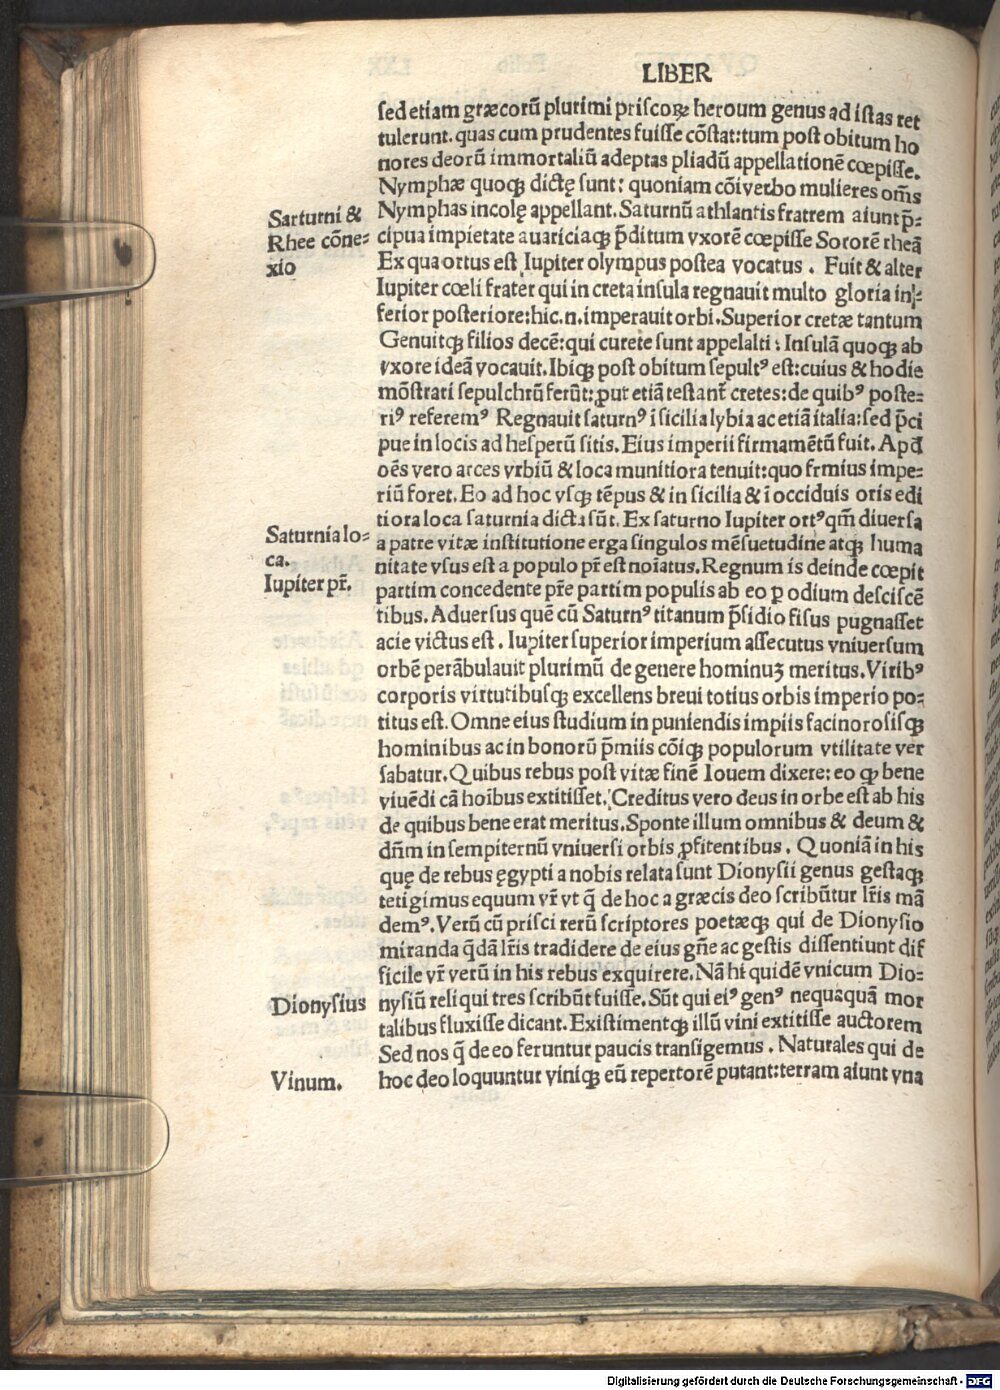 LIBER
sed etiam græcorū plurimi priscoꝝ heroum genus ad istas ret
tulerunt. quas cum prudentes fuisse cōstat: tum post obitum ho
nores deorū immortaliū adeptas pliadū appellationē cœpisse.
Nymphæ quoqꝫ dictę sunt: quoniam cōi verbo mulieres om̄s
Nymphas incolę appellant. Saturnū athlantis fratrem aiunt p̄-
cipua impietate auariciaqꝫ p̄ditum vxorē cœpisse Sororē rheā
Ex qua ortus est Iupiter olympus postea vocatus. Fuit & alter
Iupiter cœli frater qui in creta insula regnauit multo gloria in-
ferior posteriore: hic .n. imperauit orbi. Superior cretæ tantum
Genuitqꝫ filios decē: qui curete sunt appelalti: Insulā quoqꝫ ab
vxore ideā vocauit. Ibiqꝫ post obitum sepultꝰ est: cuius & hodie
mōstrari sepulchrū ferūt: ꝓut etiā testant̄ cretes: de quibꝰ poste-
riꝰ referemꝰ Regnauit saturnꝰ ī sicilia lybia ac etiā italia: sed p̄ci
pue in locis ad hesperū sitis. Eius imperii firmamētū fuit. Apd̄
oēs vero arces vrbiū & loca munitiora tenuit: quo frmius impe-
riū foret. Eo ad hoc vsqꝫ tēpus & in sicilia & ī occiduis oris edi
tiora loca saturnia dicta sūt. Ex saturno Iupiter ortꝰ qm̄ diuersa
a patre vitæ institutione erga singulos mēsuetudine atqꝫ huma
nitate vsus est a populo pr̄ est noīatus. Regnum is deinde cœpit
partim concedente pr̄e partim populis ab eo ꝑ odium desciscē
tibus. Aduersus quē cū Saturnꝰ titanum p̄sidio fisus pugnasset
acie victus est. Iupiter superior imperium assecutus vniuersum
orbē perābulauit plurimū de genere hominuꝫ meritus. Viribꝰ
corporis virtutibusqꝫ excellens breui totius orbis imperio po-
titus est. Omne eius studium in puniendis impiis facinorosisqꝫ
hominibus ac in bonorū p̄miis cōiqꝫ populorum vtilitate ver
sabatur. Quibus rebus post vitæ finē Iouem dixere: eo ꝙ bene
viuēdi cā hoībus extitisset. Creditus vero deus in orbe est ab his
de quibus bene erat meritus. Sponte illum omnibus & deum &
dn̄m in sempiternū vniuersi orbis ꝓfitentibus. Quoniā in his
quę de rebus ęgypti a nobis relata sunt Dionysii genus gestaqꝫ
tetigimus equum vr̄ vt q̄ de hoc a græcis deo scribūtur lr̄is mā
demꝰ. Verū cū prisci rerū scriptores poetæqꝫ qui de Dionysio
miranda q̄dā lr̄is tradidere de eius gn̄e ac gestis dissentiunt dif
ficile vr̄ verū in his rebus exquirere. Nā hi quidē vnicum Dio-
nysiū reliqui tres scribūt fuisse. Sūt qui eiꝰ genꝰ nequaquā mor
talibus fluxisse dicant. Existimentqꝫ illū vini extitisse auctorem
Sed nos q̄ de eo feruntur paucis transigemus. Naturales qui de
hoc deo loquuntur viniqꝫ eū repertorē putant: terram aiunt vna
Sarturni &
Rhee cōne-
xio
Saturnia lo-
ca.
Iupiter pr̄.
Dionysius
Vinum.
Digitalisierung gefördert durch die Deutsche Forschungsgemeinschaft - DFG